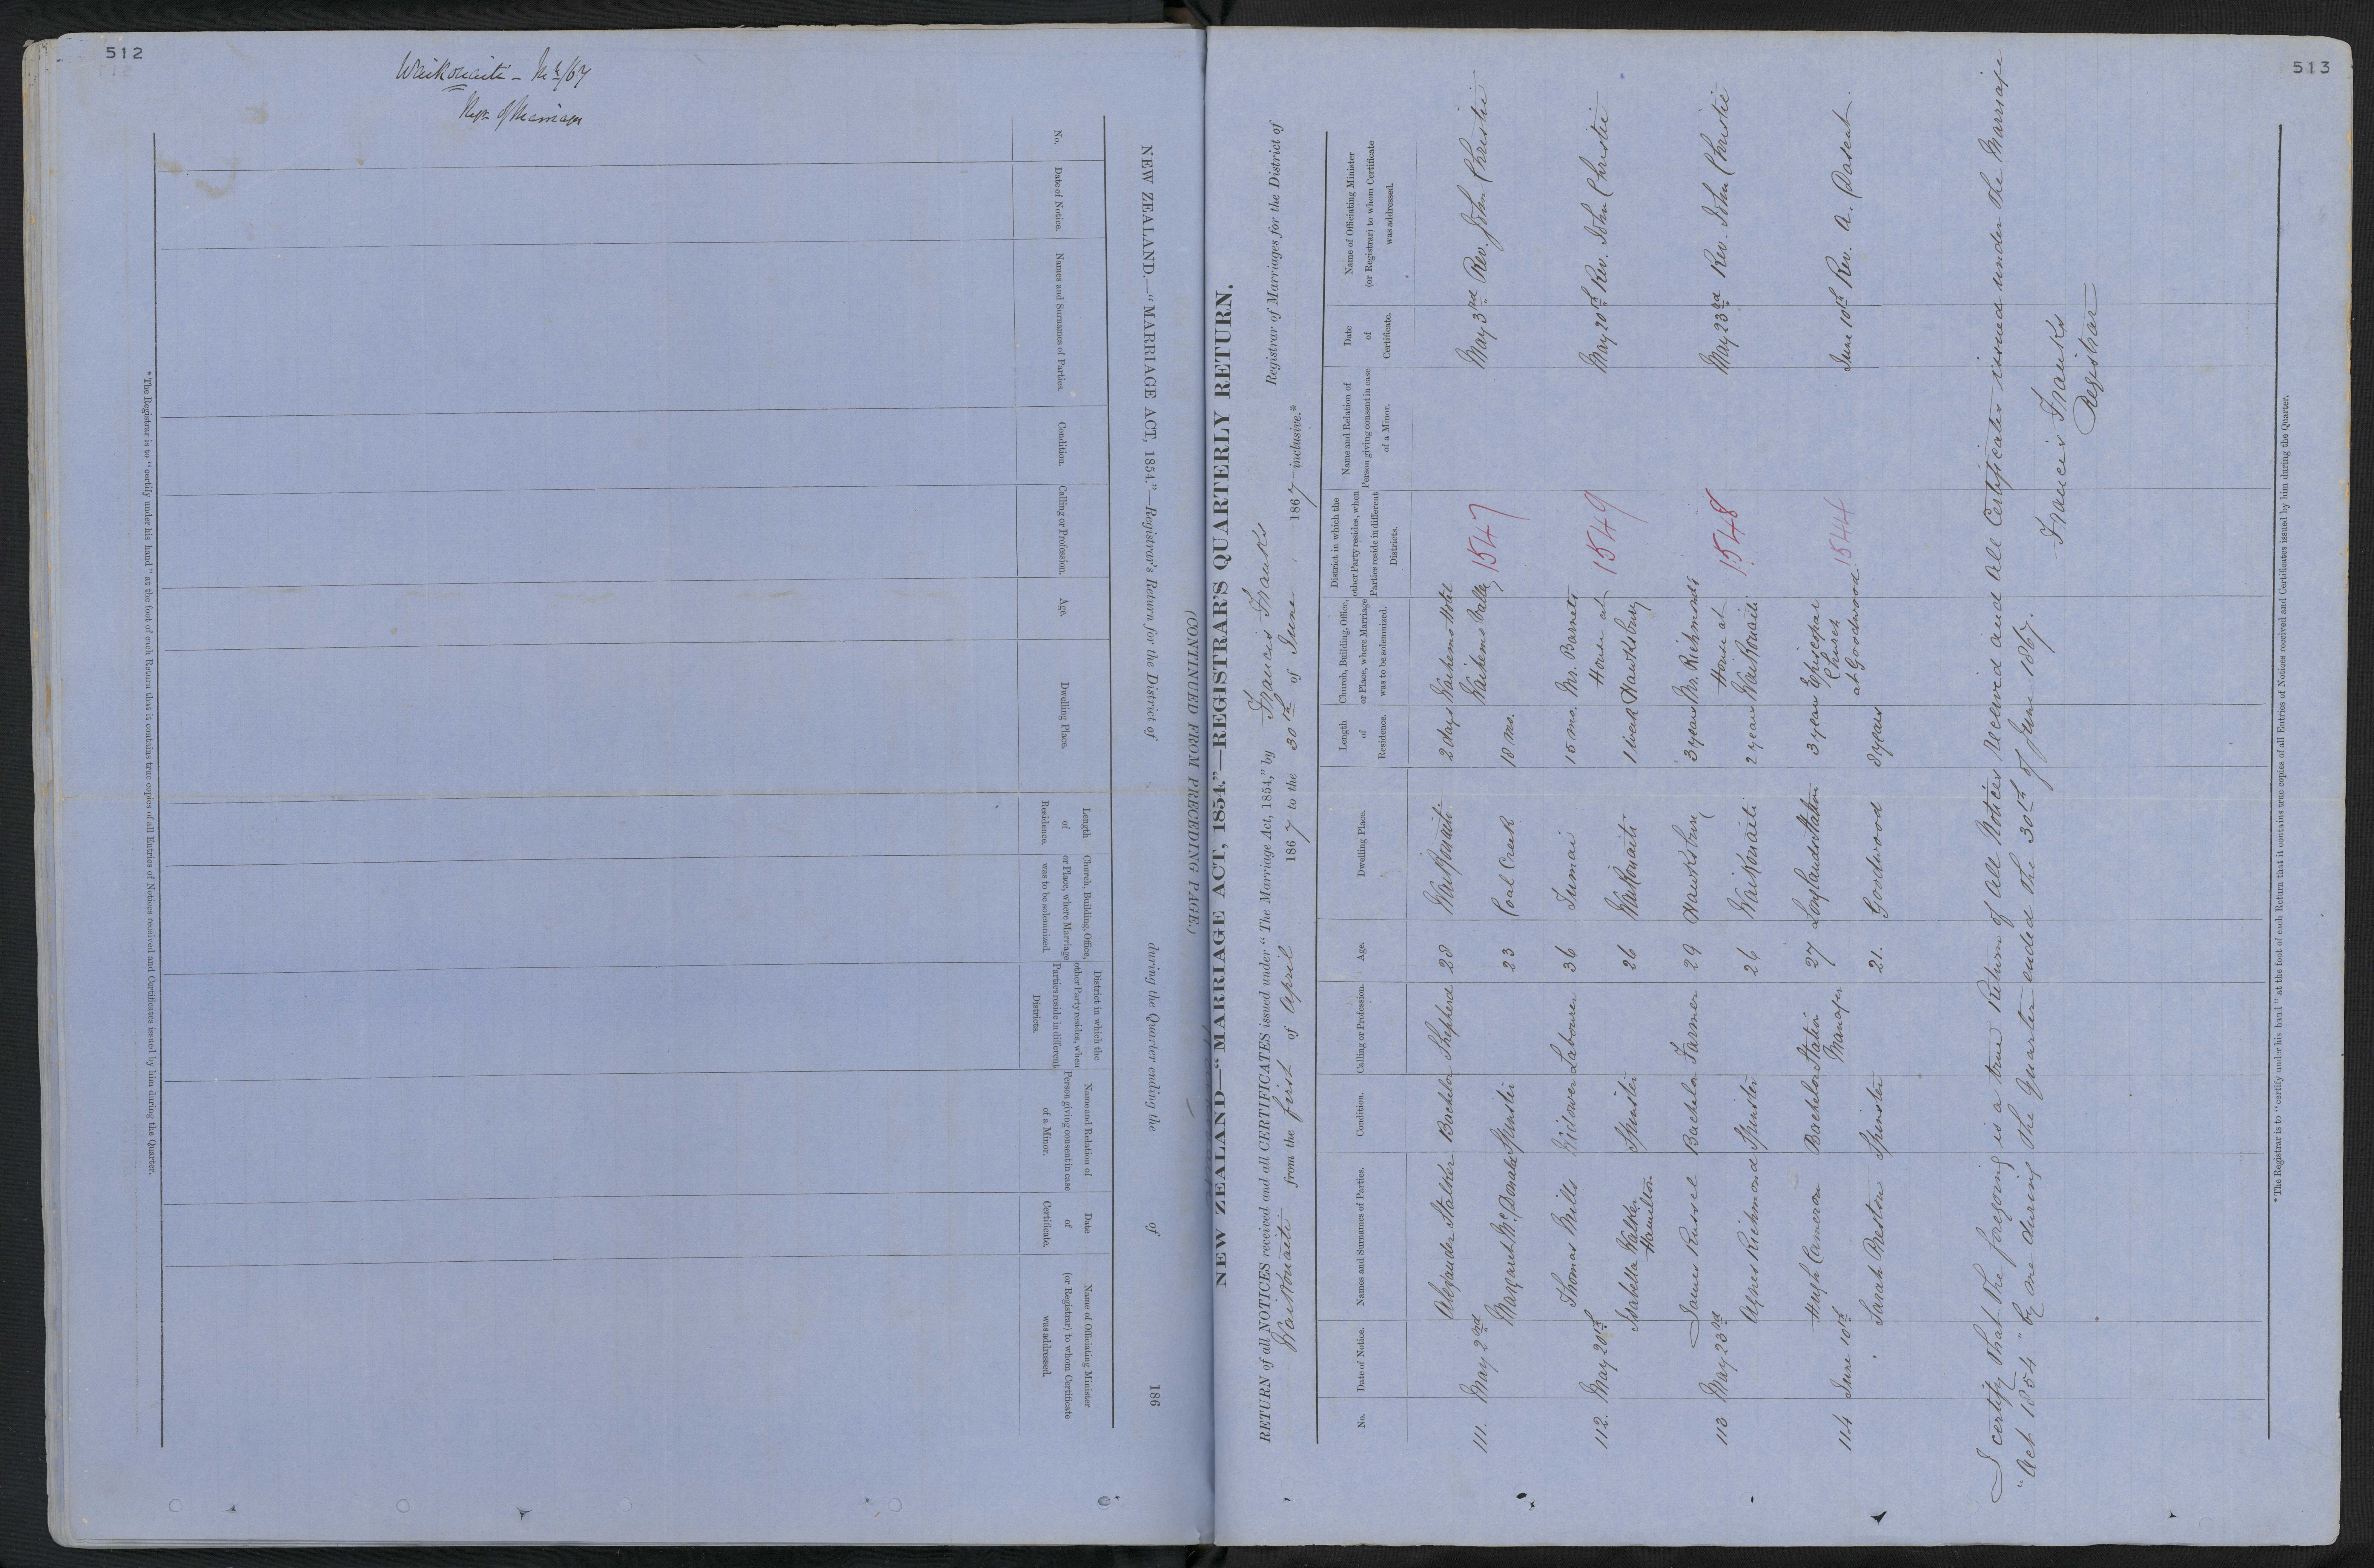 512
Waikouaiti
*The Registrar is to "certify under his hand" at the foot of each Return that it contains true copies of all Entries of Notices received and Certificates issued by him during the Quarter.
No.
Date of Notice.
Names and Surnames of Parties.
Condition.
Calling or Profession.
Age.
Dwelling Place.
Length of Residence.
Church, Building, Office, or Place, where Marriage was to be solemnized.
District in which the other Party resides, when Parties reside in different Districts.
Name and Relation of Person giving consent in case of a Minor.
Date of Certificate.
Name of Officiating Minister (or Registrar) to whom Certificate was addressed.
NEW ZEALAND.—"MARRIAGE ACT, 1854."—Registrar's Return for the District of during the Quarter ending the of 186
(CONTINUED FROM PRECEDING PAGE.)
513
NEW ZEALAND—"MARRIAGE ACT, 1854."—REGISTRAR'S QUARTERLY RETURN.
RETURN of all NOTICES received and all CERTIFICATES issued under "The Marriage Act, 1854," by Francis Franks Registrar of Marriages for the District of
Waikouaiti from the first of April 1867 to the 30th of June 1867 inclusive.*
No.
Date of Notice.
Names and Surnames of Parties.
Condition.
Calling or Profession.
Age.
Dwelling Place.
Length of Residence.
Church, Building, Office, or Place, where Marriage was to be solemnized.
District in which the other Party resides, when Parties reside in different Districts.
Name and Relation of Person giving consent in case of a Minor.
Date of Certificate.
Name of Officiating Minister (or Registrar) to whom Certificate was addressed.
Alexander Stalker Bachelor Shepherd 28 Waikouaiti 2 days Waihemo Hotel
111. May 2nd 1547 May 3rd Rev. John Christie
Margaret McDonald Spinster 23 Coal Creek 18 mo. Waihemo Valley
Thomas Mills Widower Labourer 36 Tumai 15 mo. Mr. Barnets
112. May 20th House at 1549 May 20th Rev. John Christie
Isabella Walker Hamilton Spinster 26 Waikouaiti 1 week Hawksbury
James Russel Bachelor Farmer 29 Hawksbury 3 years Mr. Richmonds
113 May 23rd House at 1548 May 23rd Rev. John Christie
Agnes Richmond Spinster 26 Waikouaiti 2 years Waikouaiti
Hugh Cameron Bachelor Station Manager 27 Longlands Station 3 years Episcopal
114 June 10th Church 1544 June 10th Rev. A. Dasent.
Sarah Preston Spinster 21. Goodwood 8 years at Goodwood.
I certify that the foregoing is a true Return of all Notices received and all Certificates issued under the Marriage
"Act 1854" by me during the Quarter ended the 30th of June 1867.
Francis Franks
Registrar
*The Registrar is to "certify under his hand" at the foot of each Return that it contains true copies of all Entries of Notices received and Certificates issued by him during the Quarter.